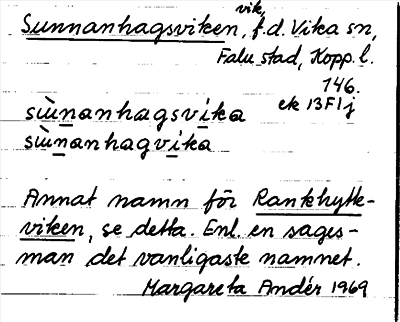 vik,
Sunnanhagsviken, f.d. Vika sn,
Falu stad, Kopp. l.
146.
ek 13F1j
sùnanhagsvika
sùnanhagvika
Annat namn för Rankhytte-
viken, se detta. Enl. en sages-
man det vanligaste namnet.
Margareta Andér 1969